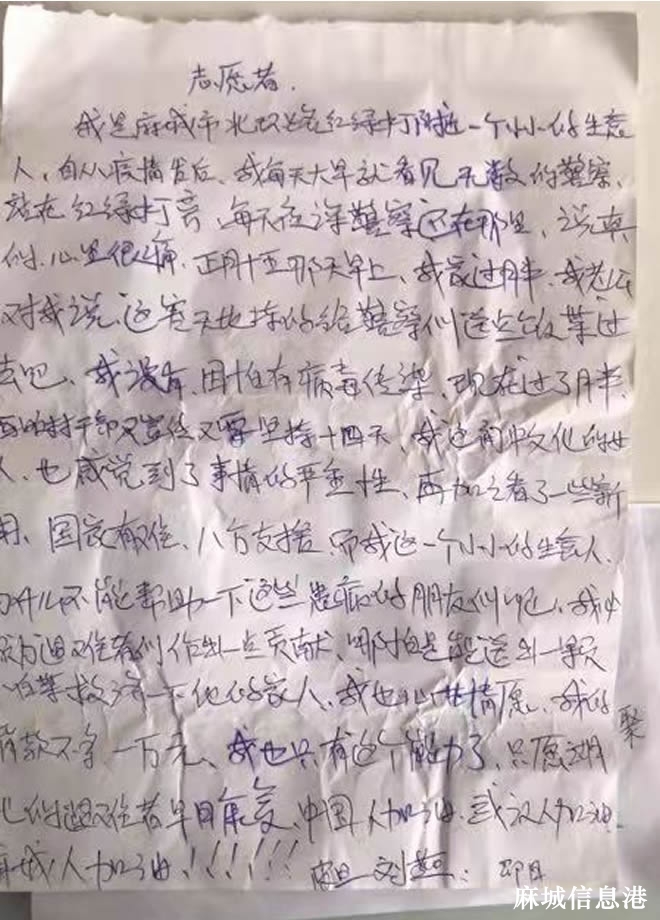 志愿者.
我是麻城市北环路红绿灯附近一个小小的生意
人、自从疫情发后、我每天大早就看见无数的警察、
站在红绿灯旁、每天夜深警察还在那里、说真
的、心里很痛、正月十五那天早上、我家过月半、我老公
对我说、这寒天地冻的给警察们送点饭菜过
去吧、我没有、因怕有病毒传染、现在过了月半、
村干部又宣传又要坚持十四天、我这初中文化的女
人、也感觉到了事情的严重性、再加之看了一些新
闻、国家有难、八方支援、而我这一个小小的生意人、
为什么不能帮助一下这些患病的朋友们呢、我必
须为遇难者们作出一点贡献、哪怕是能送出一颗
白菜救济一下他的家人、我也心甘情愿、我的
捐款不多一万元、我也只有这个能力了、只愿湖
北的遇难者早日康复、中国人加油、武汉人加油、
麻城人加油!!!!!! 刘 即日
聚
麻城信息港